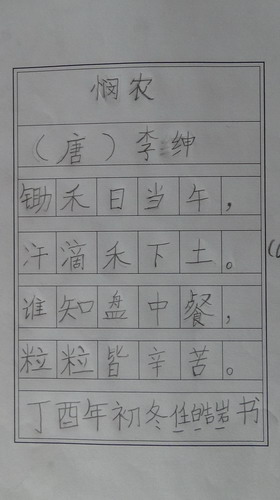 悯农
（唐）李绅
锄禾日当午，
汗滴禾下土。
谁知盘中餐，
粒粒皆辛苦。
丁酉年初冬任皓岩书